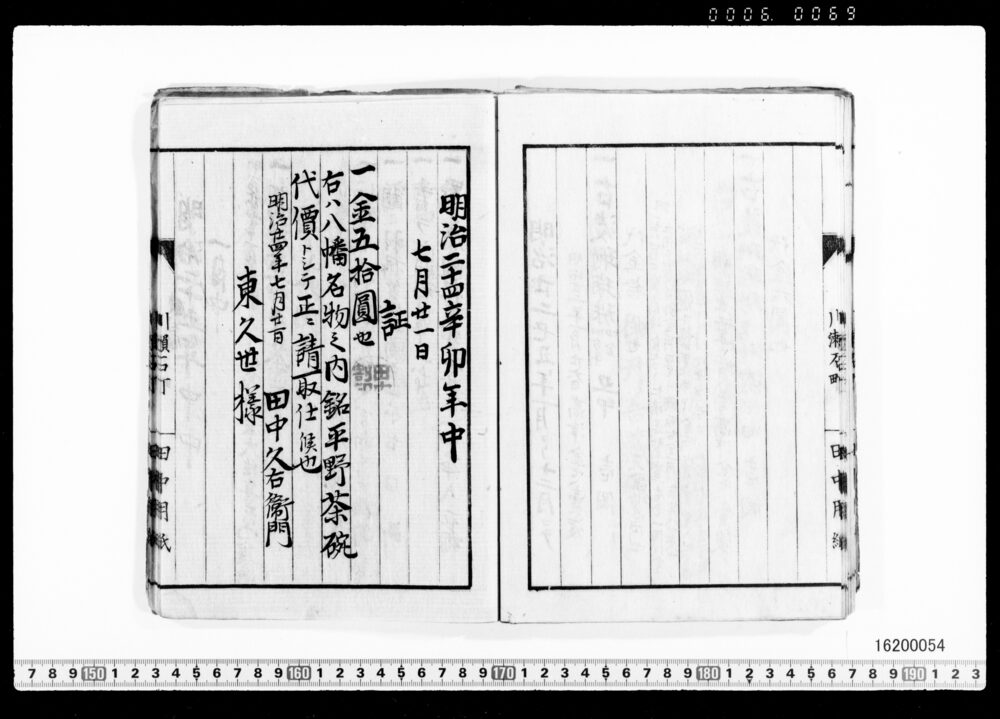 0006. 0069
川瀬石町
田中用紙
明治二十四辛卯年中
七月廿一日
証
一金五拾圓也
右ハ八幡名物之内銘平野茶碗
代價トシテ正ニ請取仕候也
明治廿四年七月廿一日
田中久右衛門
東久世様
川瀬石丁
田中用紙
16200054
7 8 9 150 1 2 3 4 5 6 7 8 9 160 1 2 3 4 5 6 7 8 9 170 1 2 3 4 5 6 7 8 9 180 1 2 3 4 5 6 7 8 9 190 1 2 3